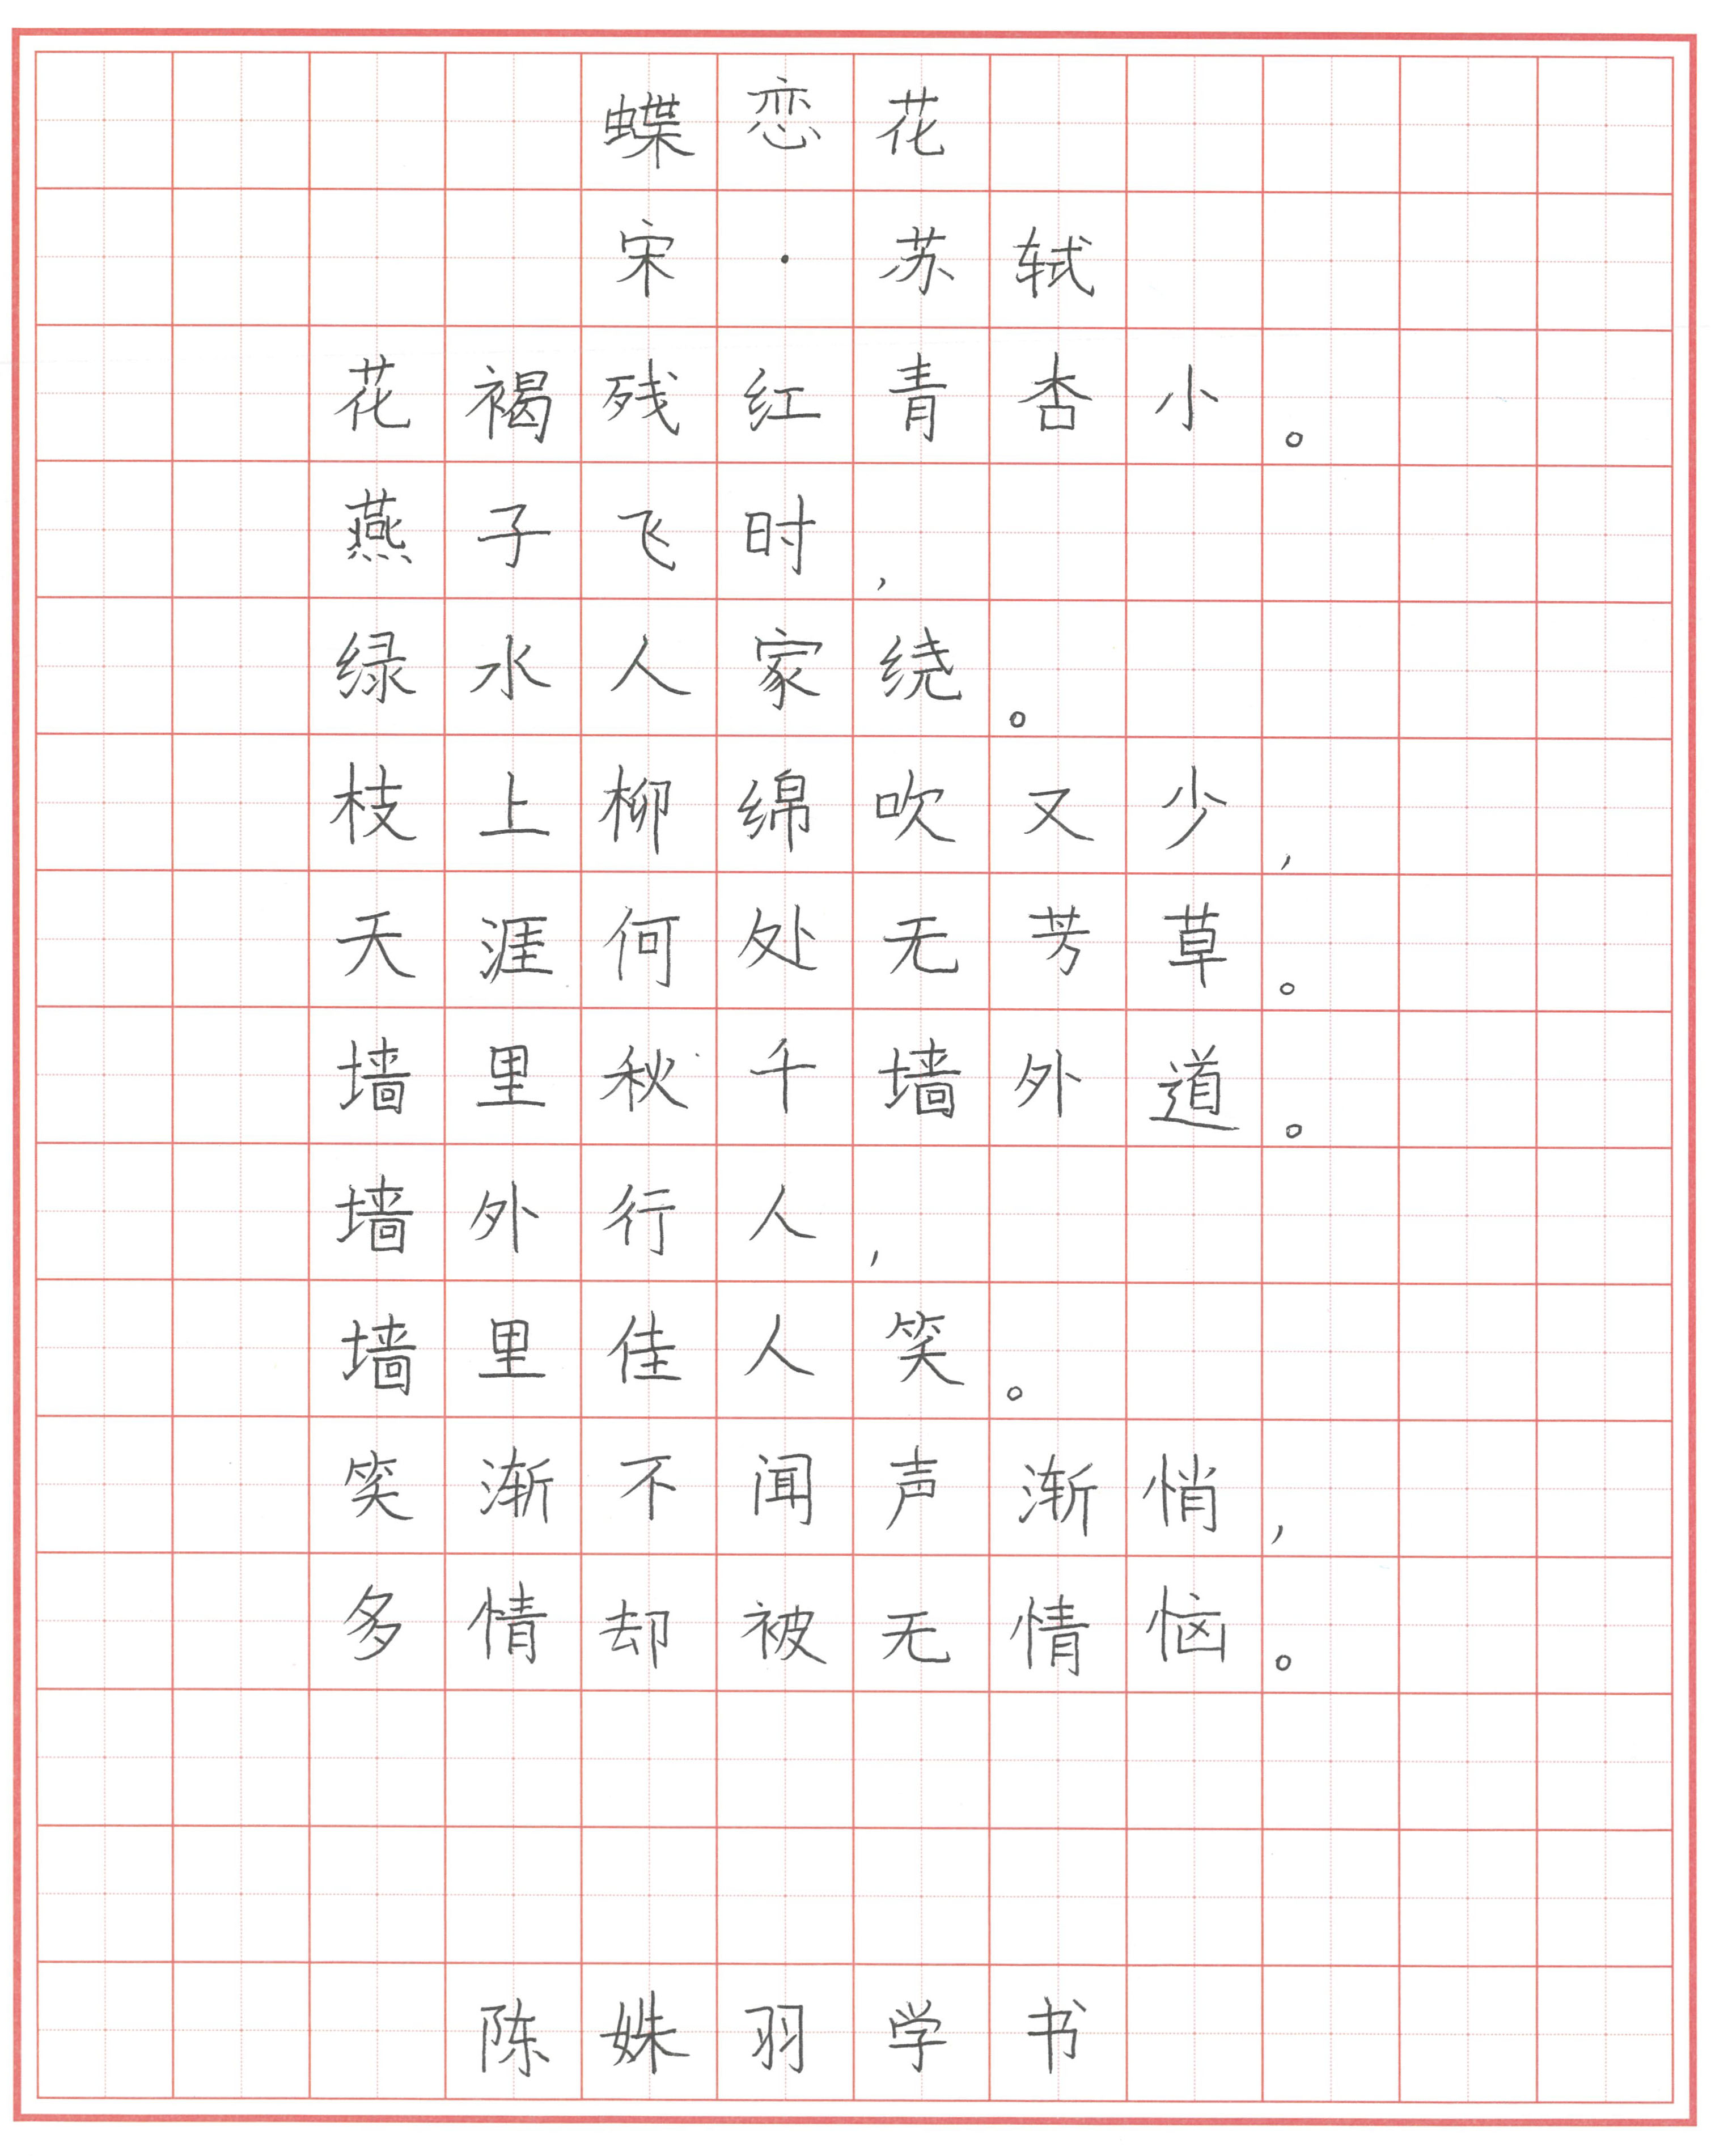 蝶恋花
宋·苏轼
花褐残红青杏小。
燕子飞时，
绿水人家绕。
枝上柳绵吹又少，
天涯何处无芳草。
墙里秋千墙外道。
墙外行人，
墙里佳人笑。
笑渐不闻声渐悄，
多情却被无情恼。
陈姝羽学书